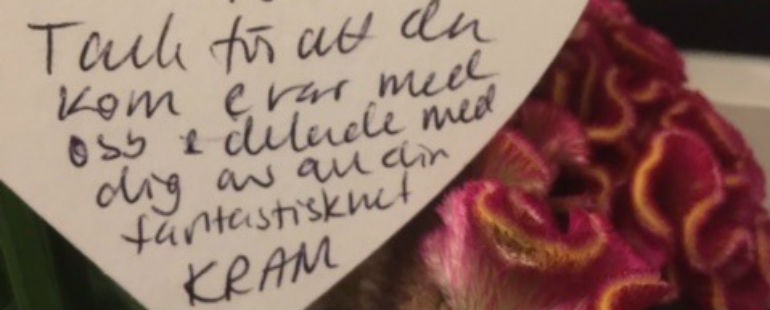 Tack för att du
kom & var med
oss & delade med
dig av all din
fantastiskhet
KRAM